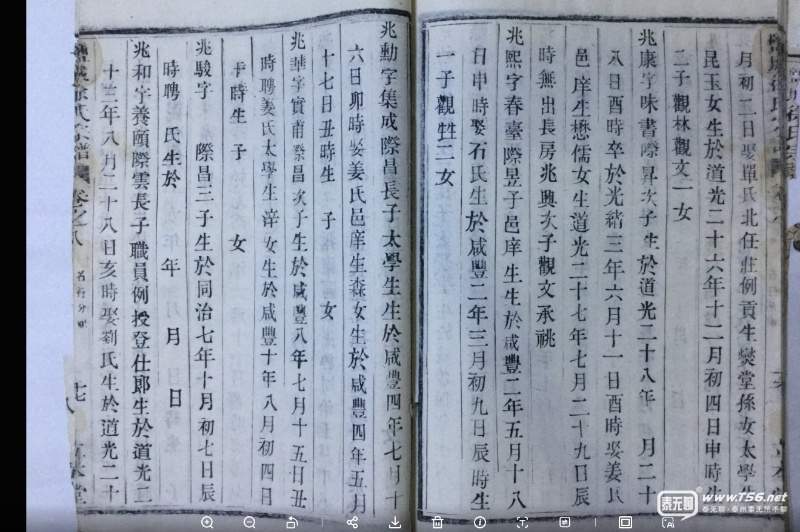 月初二日娶單氏北任莊例貢生爕堂孫女太學生
昆玉女生於道光二十六年十二月初四日申時生
二子觀林觀文一女
兆康字味書際昇次子生於道光二十八年 月二十
八日酉時卒於光緒三年六月十一日酉時娶姜氏
邑庠生懋儒女生道光二十七年七月二十九日辰
時無出長房兆興次子觀文承祧
兆熙字春臺際昱子邑庠生生於咸豐二年五月十八
日申時娶石氏生於咸豐二年三月初九日辰時生
一子觀甡二女
兆勳字集成際昌長子太學生生於咸豐四年七月十
六日卯時娶姜氏邑庠生森女生於咸豐四年五月
十七日丑時生 子 女
兆華字實甫際昌次子生於咸豐八年七月十五日丑
時聘姜氏太學生淬女生於咸豐十年八月初四日
午時生 子 女
兆駿字 際昌三子生於同治七年十月初七日辰
時聘 氏生於 年 月 日
兆和字養頤際雲長子職員例授登仕郎生於道光二
十三年八月二十八日亥時娶劉氏生於道光二十
氏宗譜 卷之八
七八
立本堂
泰无聊
www.T56.net
泰无聊,泰州泰无所不聊